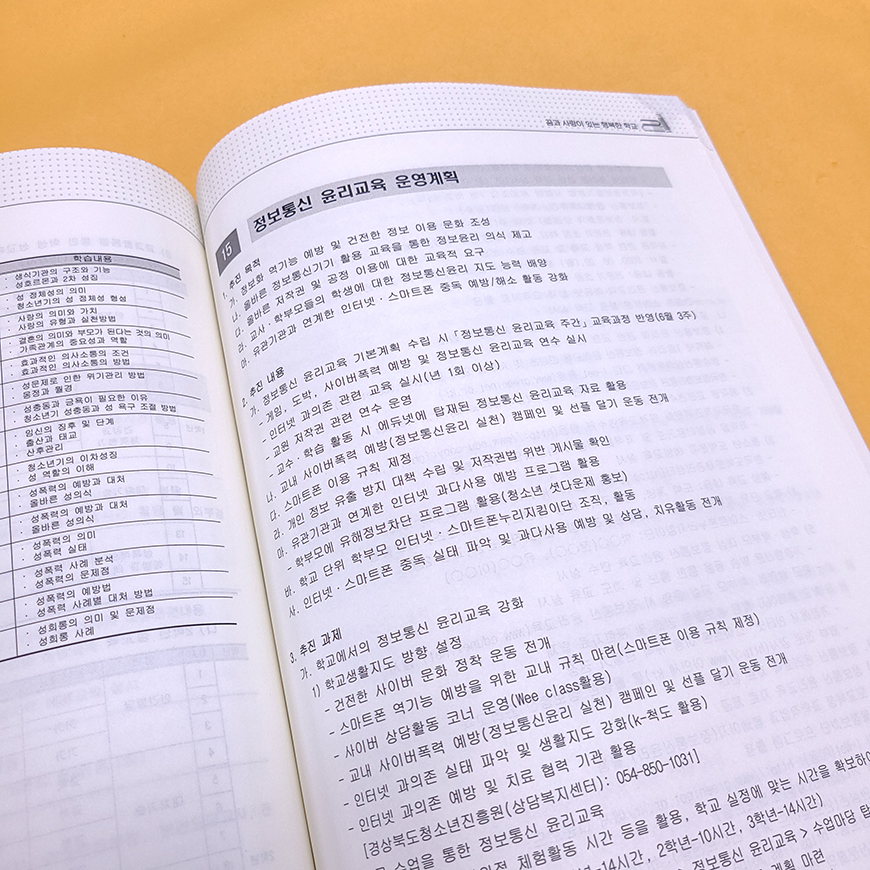 학습내용
· 생식기관의 구조와 기능
· 성호르몬과 2차 성징
· 성 정체성의 의미
· 청소년기의 성 정체성 형성
· 사랑의 의미와 가치
· 사랑의 유형과 실천방법
· 결혼의 의미와 부모가 된다는 것의 의미
· 가족관계의 중요성과 역할
· 효과적인 의사소통의 조건
· 효과적인 의사소통의 방법
· 성문제로 인한 위기관리 방법
· 몽정과 월경
· 성충동과 금욕이 필요한 이유
· 청소년기 성충동과 성 욕구 조절 방법
· 임신의 징후 및 단계
· 출산과 태교
· 산후관리
· 청소년기의 이차성징
· 성 역할의 이해
· 성폭력의 예방과 대처
· 올바른 성의식
· 성폭력의 예방과 대처
· 올바른 성의식
· 성폭력의 의미
· 성폭력 실태
· 성폭력 사례 분석
· 성폭력의 문제점
· 성폭력의 예방법
· 성폭력 사례별 대처 방법
· 성희롱의 의미 및 문제점
· 성희롱 사례
꿈과 사랑이 있는 행복한 학교
15 정보통신 윤리교육 운영계획
1. 추진 목적
가. 정보화 역기능 예방 및 건전한 정보 이용 문화 조성
나. 올바른 정보통신기기 활용 교육을 통한 정보윤리 의식 제고
다. 올바른 저작권 및 공정 이용에 대한 교육적 요구
라. 교사·학부모들의 학생에 대한 정보통신윤리 지도 능력 배양
마. 유관기관과 연계한 인터넷·스마트폰 중독 예방/해소 활동 강화
2. 추진 내용
가. 정보통신 윤리교육 기본계획 수립 시 「정보통신 윤리교육 주간」 교육과정 반영(6월 3주)
- 게임, 도박, 사이버폭력 예방 및 정보통신 윤리교육 연수 실시
- 인터넷 과의존 관련 교육 실시(년 1회 이상)
- 교원 저작권 관련 연수 운영
- 교수·학습 활동 시 에듀넷에 탑재된 정보통신 윤리교육 자료 활용
나. 교내 사이버폭력 예방(정보통신윤리 실천) 캠페인 및 선플 달기 운동 전개
다. 스마트폰 이용 규칙 제정
라. 개인 정보 유출 방지 대책 수립 및 저작권법 위반 게시물 확인
마. 유관기관과 연계한 인터넷 과다사용 예방 프로그램 활용
- 학부모에 유해정보차단 프로그램 활용(청소년 셧다운제 홍보)
바. 학교 단위 학부모 인터넷·스마트폰누리지킴이단 조직, 활동
사. 인터넷·스마트폰 중독 실태 파악 및 과다사용 예방 및 상담, 치유활동 전개
3. 추진 과제
가. 학교에서의 정보통신 윤리교육 강화
1) 학교생활지도 방향 설정
- 건전한 사이버 문화 정착 운동 전개
- 스마트폰 역기능 예방을 위한 교내 규칙 마련(스마트폰 이용 규칙 제정)
- 사이버 상담활동 코너 운영(Wee class활용)
- 교내 사이버폭력 예방(정보통신윤리 실천) 캠페인 및 선플 달기 운동 전개
- 인터넷 과의존 실태 파악 및 생활지도 강화(k-척도 활용)
- 인터넷 과의존 예방 및 치료 협력 기관 활용
[경상북도청소년진흥원(상담복지센터): 054-850-1031]
수업을 통한 정보통신 윤리교육
체험활동 시간 등을 활용, 학교 실정에 맞는 시간을 확보하여
-14시간, 2학년-10시간, 3학년-14시간)
정보통신 윤리교육 > 수업마당 탑
계획 마련